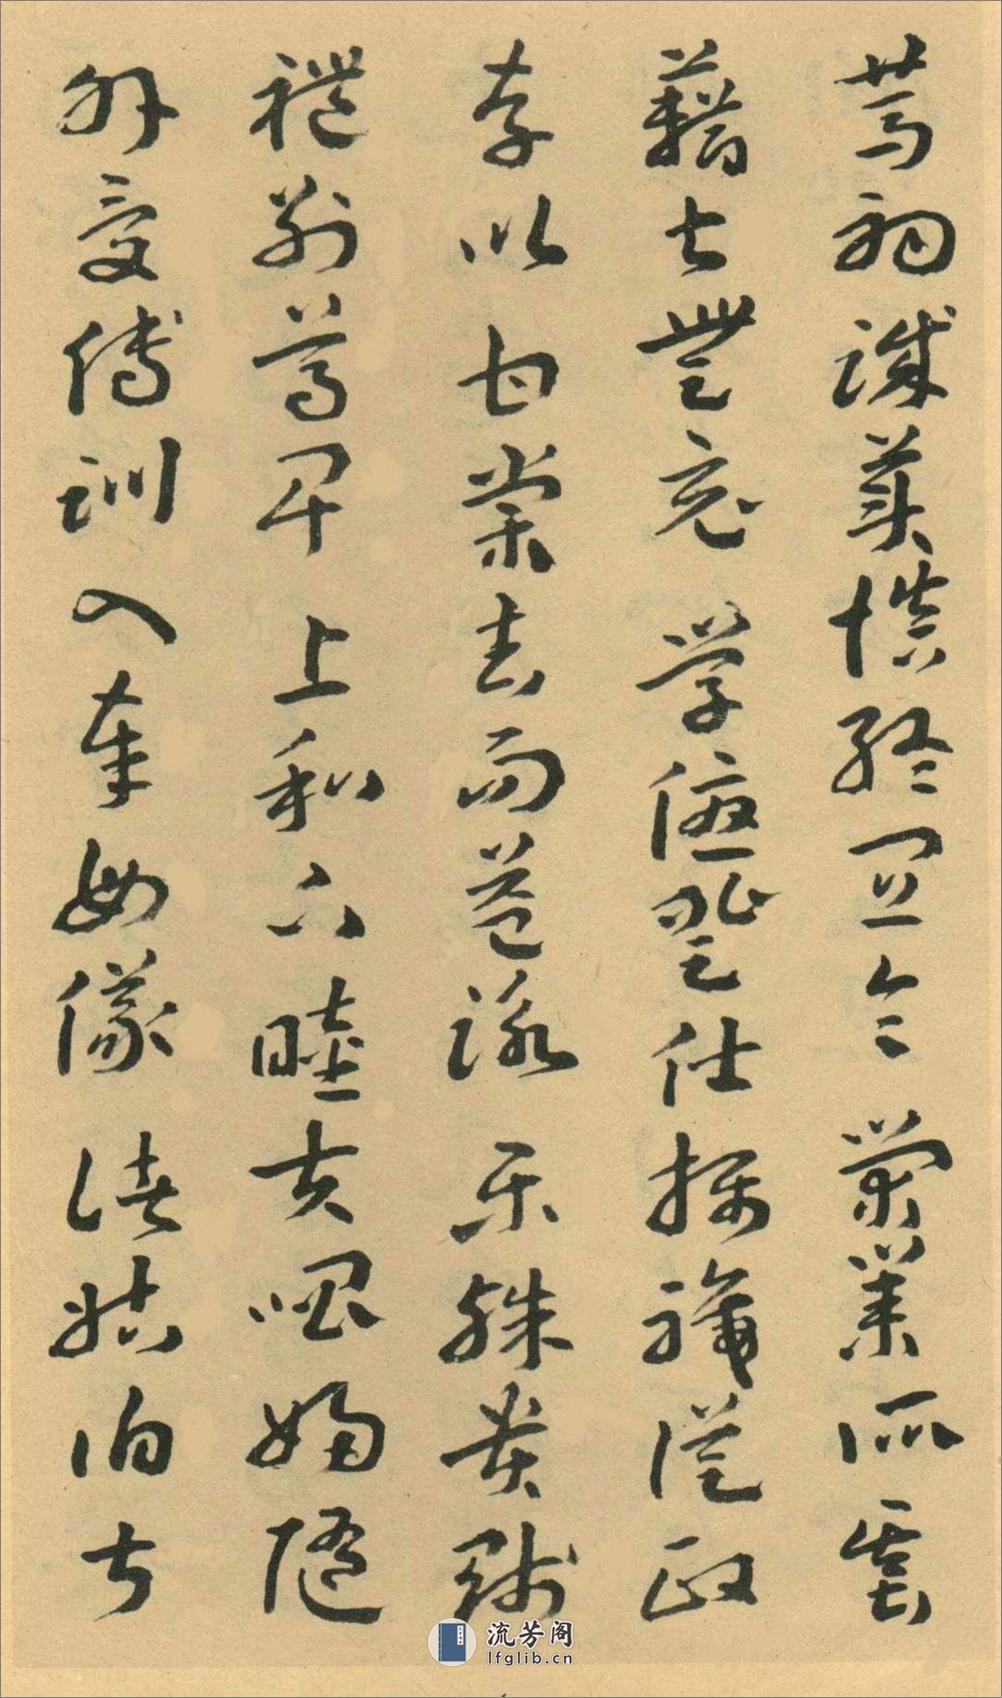 篤初誠美慎終宜令榮業所基
籍甚無竟學優登仕攝職從政
存以甘棠去而益詠樂殊貴賤
禮別尊卑上和下睦夫唱婦隨
外受傅訓入奉母儀諸姑伯叔
流芳阁
lfglib.cn